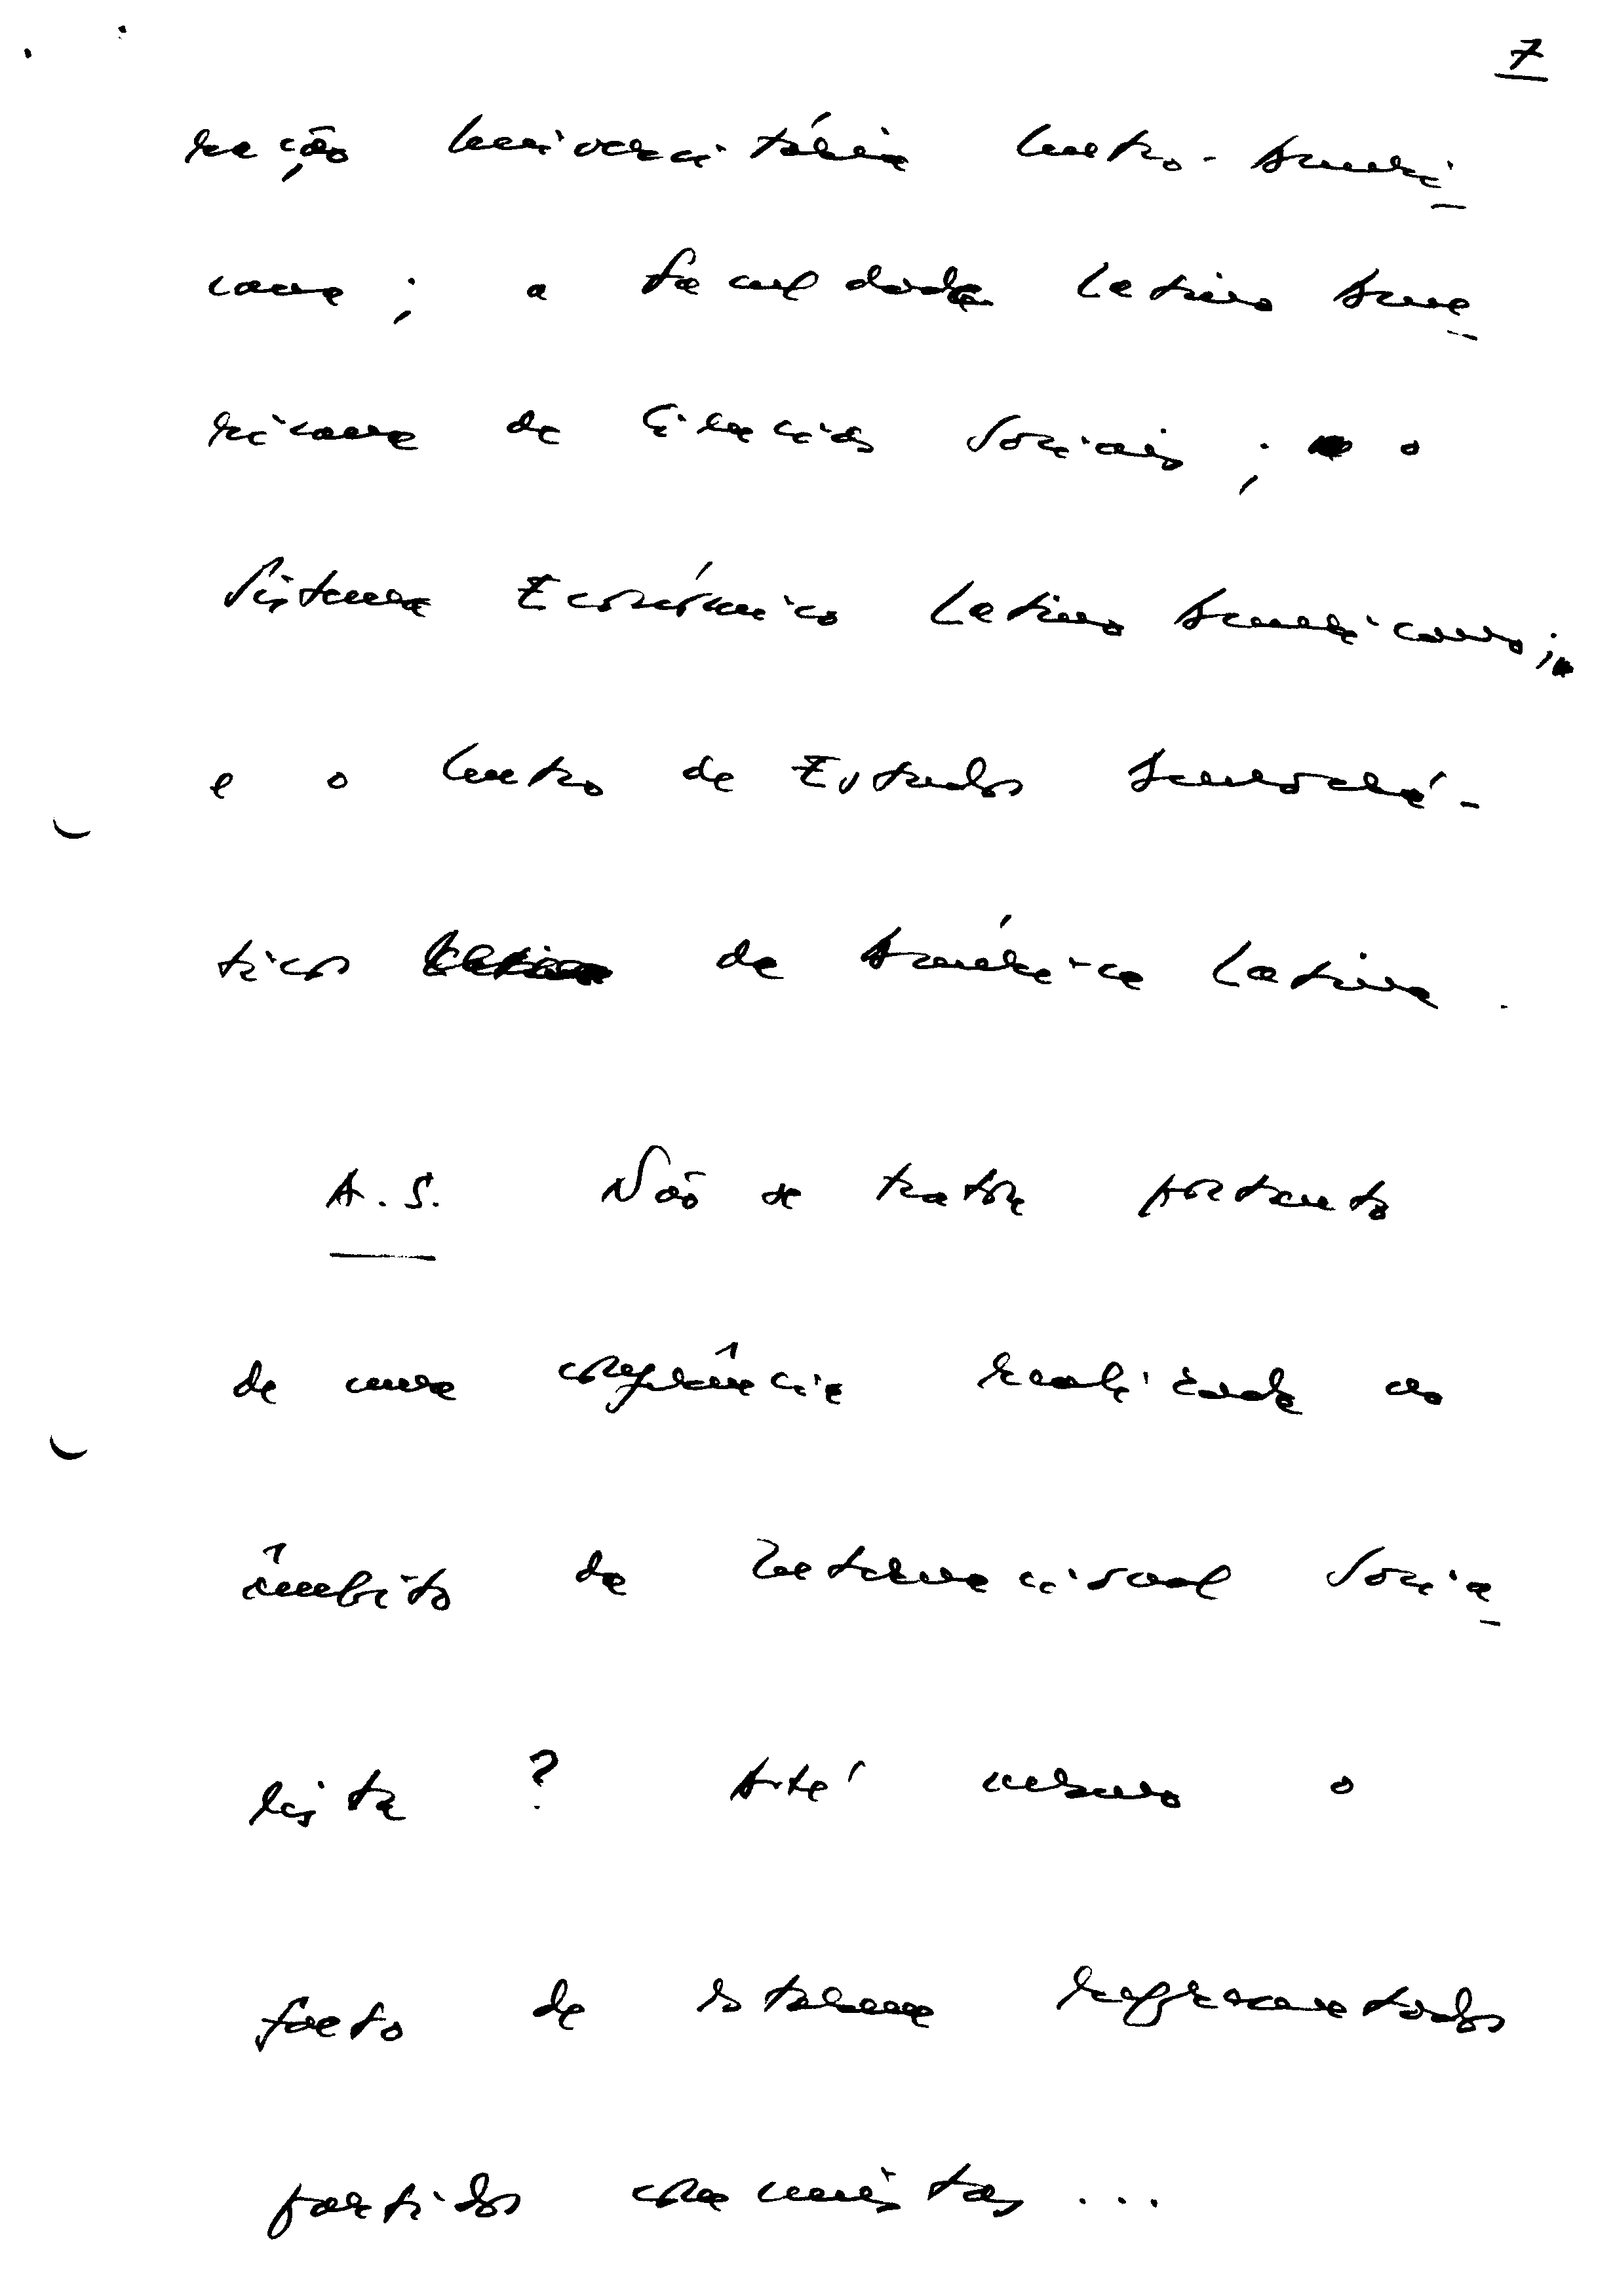 7
ração Universitária Centro-Ameri
cana ; a Faculdade Latino Ame
ricana de Ciências Sociais ; o
Sistema Económico Latino Americano ;
e o Centro de Estudos Democrá-
ticos da América Latina .
A. S. Não se trata portanto
de uma conferência realizada no
âmbito da Internacional Socia
lista ? Até mesmo o
facto de estarem representados
partidos comunistas ...